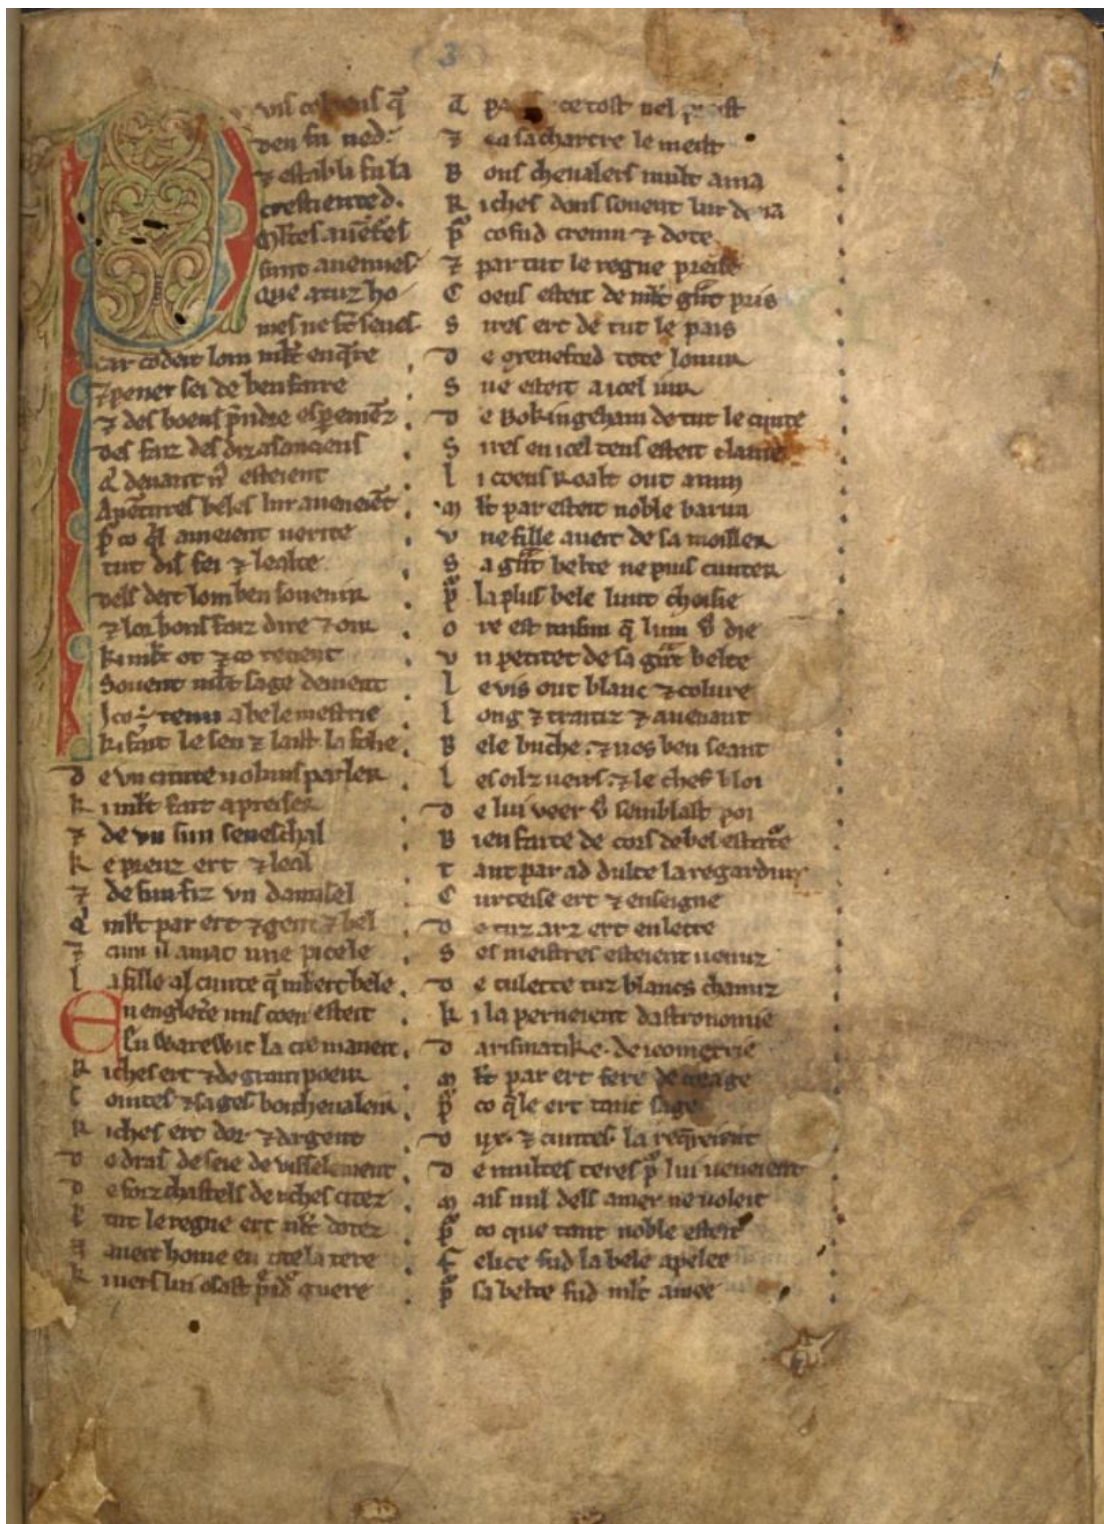 3
1
Puis cel tens q̄
deu fu ned
⁊ establi fu la
crestiented.
Mltes auētes
sunt auenues
Que a tuz ho
mes ne st seues
Car co deit lom mlt enq̄re
⁊ pener sei de ben faire
⁊ des boens p̄ndre esꝑemēz
Des faiz des diz as anciens
Q̇ deuant nꝰ esteient
Auētures beles lur aueneiēt
P̄ co q̄l ameient uerite
tut dis fei ⁊ lealte
Dels deit lom ben souenir
⁊ lor bons faiz dire ⁊ oir
ki mlt ot ⁊ co retient
Souent mlt sage deuient
Ico ÷ tenu a bele mestrie
ki fait le sen ⁊ laist la folie
de vn cunte uobuis parler
k i mlt fait a preiser
⁊ de vn sun seneschal
k e pruz ert ⁊ leal
⁊ de sun fiz vn damisel
Q̇ mlt par ert ⁊ gent ⁊ bel
⁊ cum il amat une picele
l a fille al cunte q̄ mlt ert bele
En engletere uns coens esteit
En Warewic la cite maneit
R iches ert ⁊ de grant poeir
C ointes ⁊ sages bon cheualeir
R iches ert dor ⁊ dargent
D e dras de seie de uisselement
D e forz chastels de riches citez
P̄ tut le regne ert mlt dotez
N aueit home en tote la tere
K iuers lui osast p̄ndre guere
Q̇ par ce tost nel preist
⁊ en sa chartre le meist
B ons cheualers mult ama
R iches dons souent lur dona
P̄ co fud cremu ⁊ dote
⁊ par tut le regne preise
C oens esteit de mlt gnt pris
S ires ert de tut le pais
D e oxeneford tote lonur
S ue esteit a icel iur
D e Bokingeham de tut le cunte
S ires en icel tens esteit clame
L i coens Roalt out a nun
M lt par esteit noble barun
V ne fille aueit de sa moiller
S a gnt belte ne puis cunter
P̄ la plus bele lunt choisie
O re est raisun q̄ lum vꝰ die
V n petitet de sa gnt belte
L e vis out blanc ⁊ colure
L ong ⁊ traitiz ⁊ auenant
B ele buche ⁊ nes ben seant
L es oilz ueirs ⁊ le chef bloi
D e lui veer vꝰ semblast poi
B ien faite de cors de bel estature
T ant par ad dulce la regardure
C urteise ert ⁊ enseigne
D e tuz arz ert enlette
S es meistres esteient uenuz
D e tulette tuz blancs chanuz
K i la perneient dastronomie
D arismatike. de ieometrie
M lt par ert fere de corage
P̄ co q̄le ert tant sage
D ux. ⁊ cuntes la req̄reient
D e multes teres p̄ lui ueneient
M ais nul dels amer ne uoleit
P̄ co que tant noble esteit
F elice fud la bele apelee
P̄ sa belte fud mlt amee